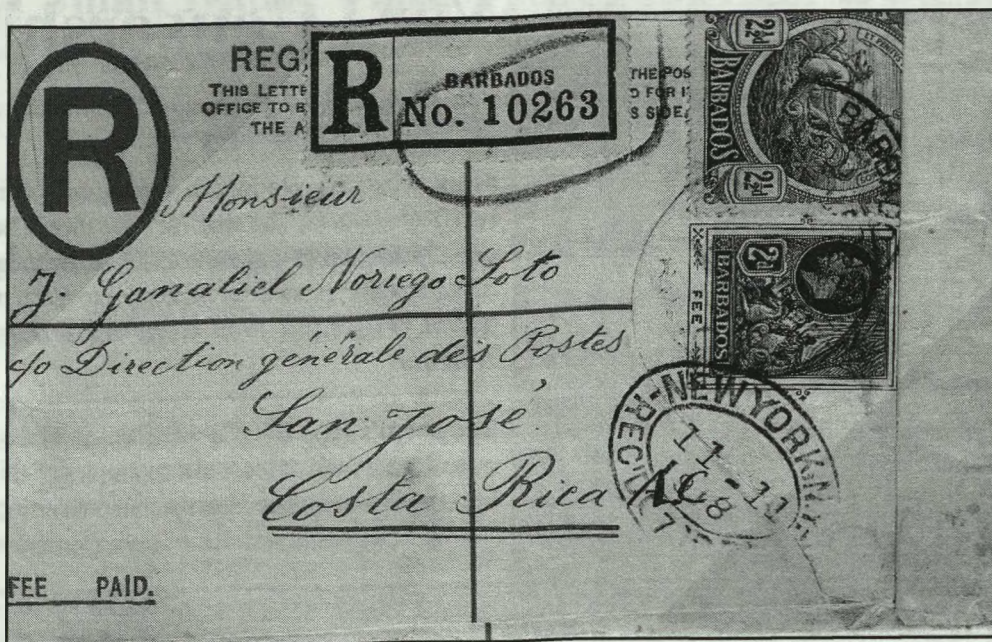 R
REG
THIS LETTE
OFFICE TO B
THE A
R
BARBADOS
No. 10263
THE POS
D FOR I
S SIDE.
2½d
2½d
BARBADOS
BARBADOS
2d
BARBADOS
FEE
Monsieur
J. Ganaliel Noriego Soto
c/o Direction générale des Postes
San José
Costa Rica
NEW YORK, N.Y.
11-11
1928
REC'D
FEE PAID.